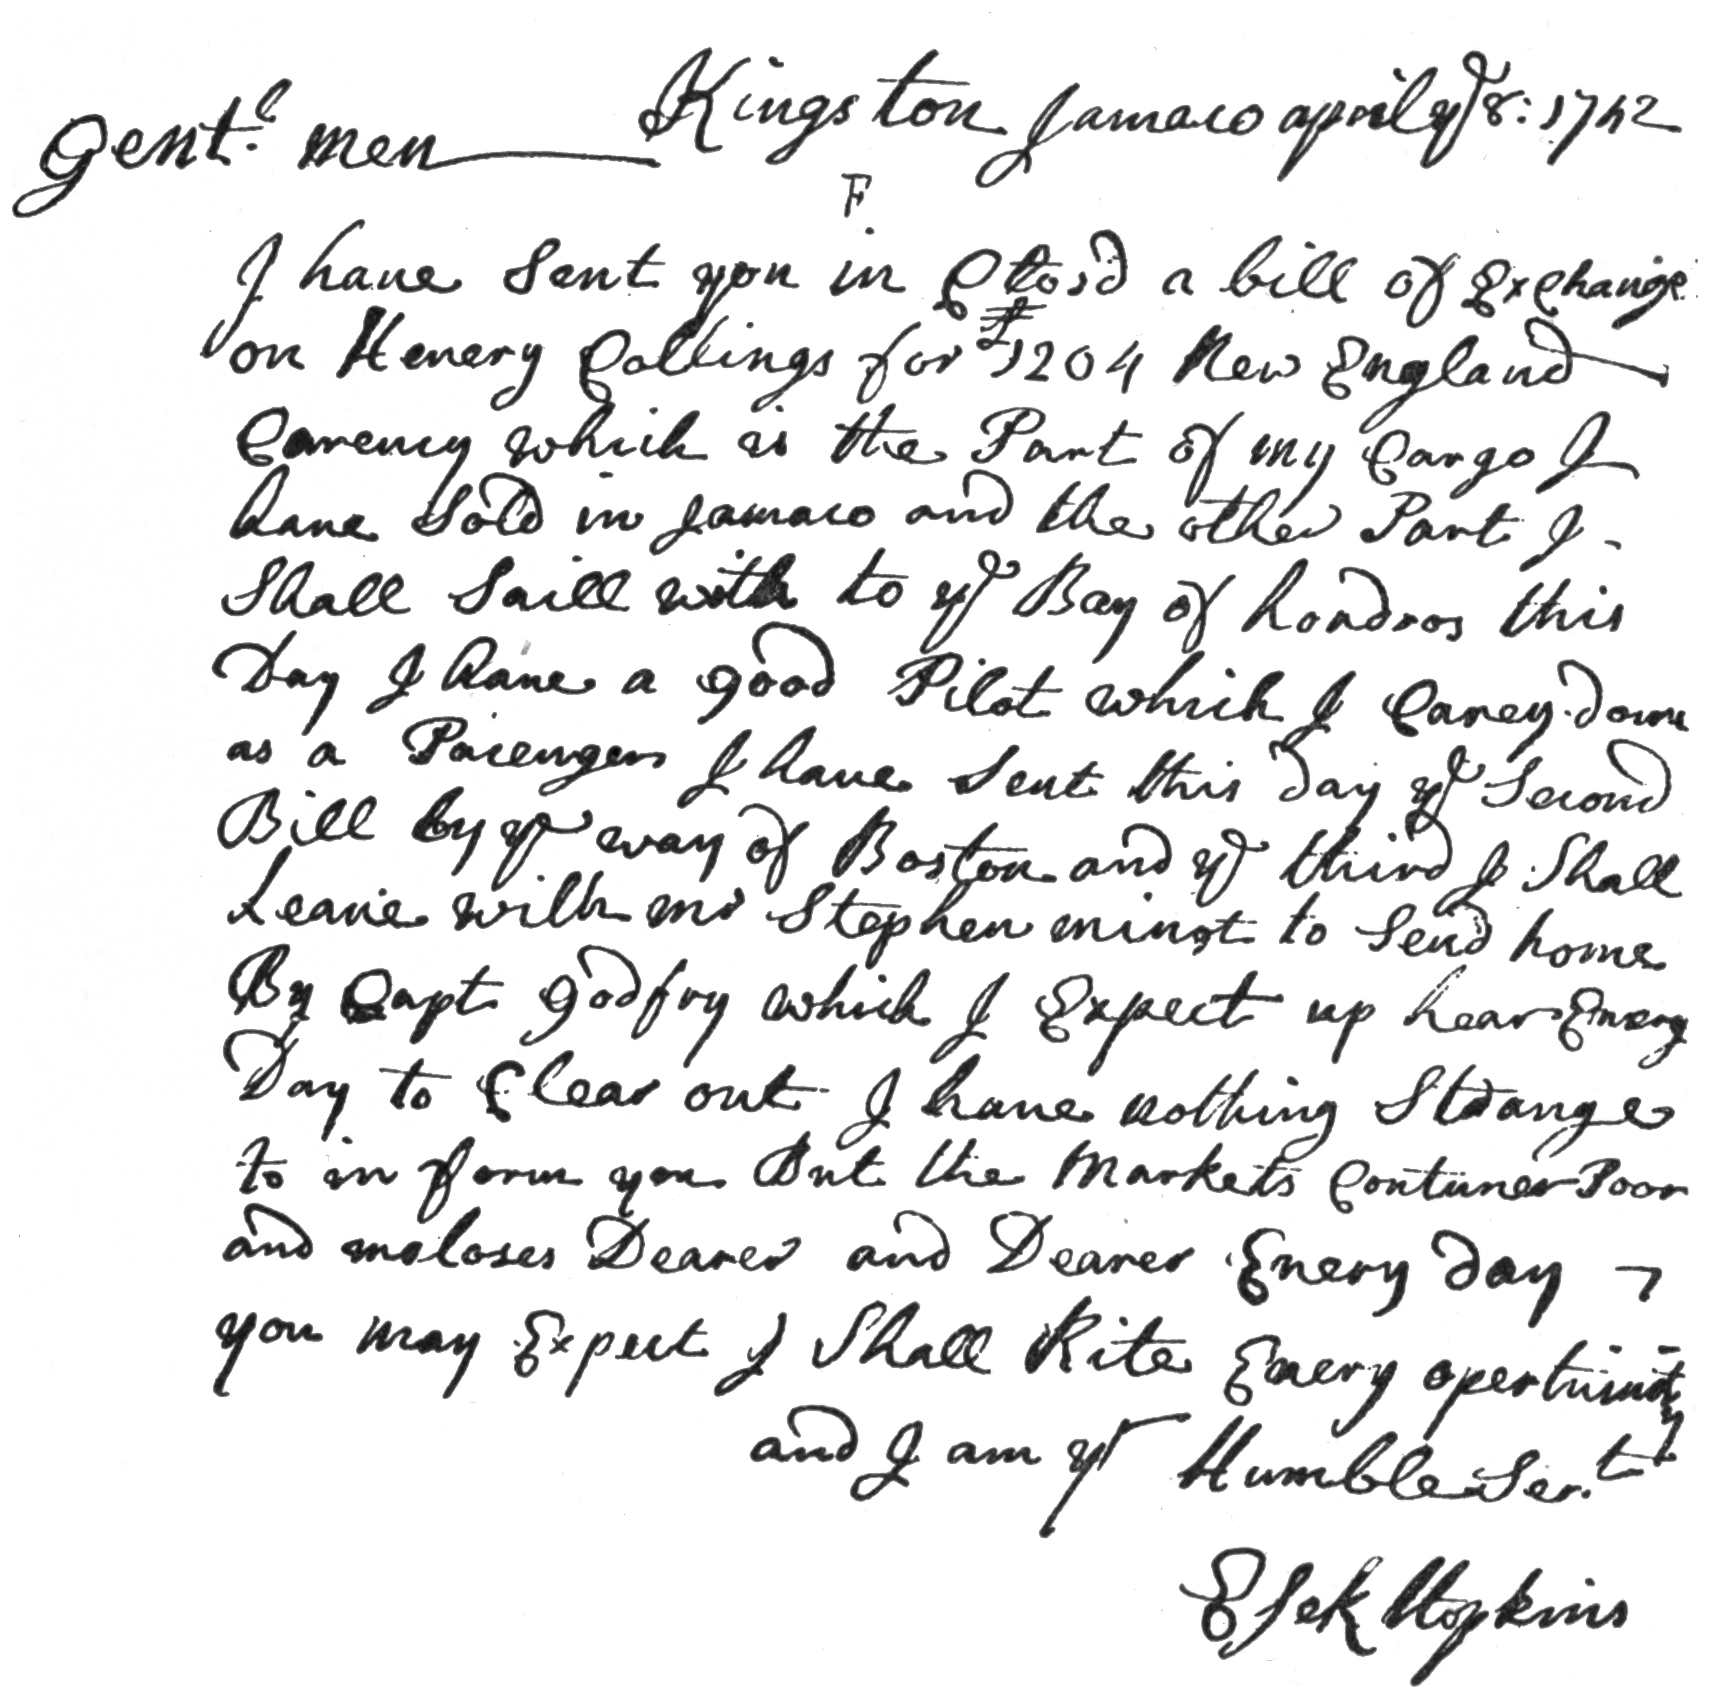 Kingston Jamaco april ye 8: 1742
Gentle men
F
I have Sent you in Closd a bill of Exchange
on Henery Collings for £1204 New England
Carency which is the Part of my Cargo I
have Sold in Jamaco and the other Part I
Shall Saill with to ye Bay of hondros this
Day I have a good Pilot which I Carey down
as a Pasenger I have Sent this day ye Second
Bill by ye way of Boston and ye third I Shall
Leave with mr Stephen minot to Send home
By Capt godfry which I Expect up hear Every
Day to Clear out I have nothing Strange
to in form you But the Markets Contuner Poor
and moloses Dearer and Dearer Every day
you may Expect I Shall Rite Every opertuinity
and I am yr Humble Ser.t
Esek Hopkins